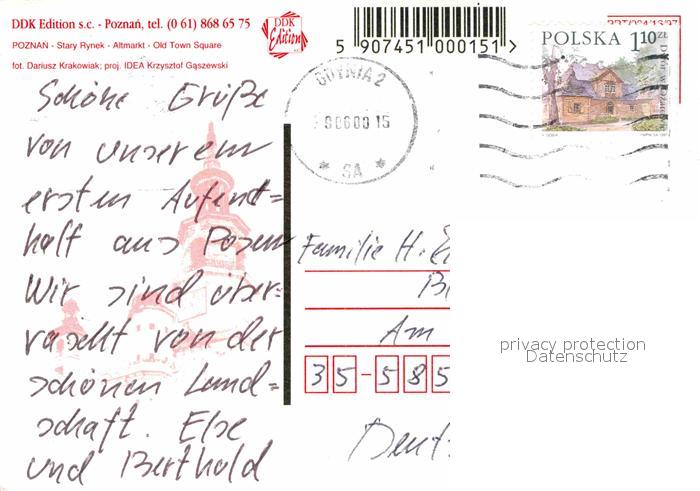 DDK Edition s.c. - Poznań, tel. (0 61) 868 65 75
POZNAŃ - Stary Rynek - Altmarkt - Old Town Square
fot. Dariusz Krakowiak; proj. IDEA Krzysztof Gąszewski
DDK
Edition
5 907451 000151 >
POLSKA 1,10 ZŁ
GDYNIA 2
SA
Schöne Grüße
von unserem
ersten Aufent=
halt aus Posen
Wir sind über=
rascht von der
schönen Land=
schaft. Else
und Berthold
Familie H.
Am
35-585
privacy protection
Datenschutz